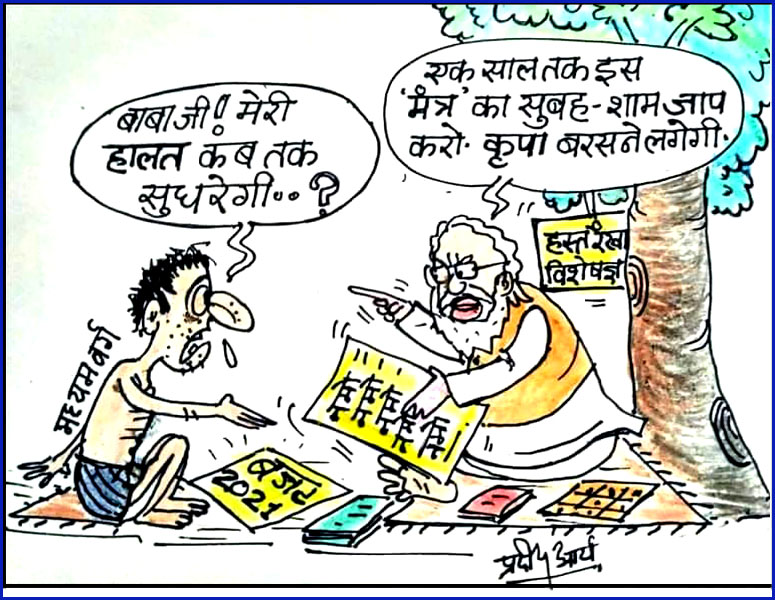 बाबाजी! मेरी
हालत कब तक
सुधरेगी..?
एक साल तक इस
'मंत्र' का सुबह-शाम जाप
करो. कृपा बरसने लगेगी.
हस्त रेखा
विशेषज्ञ
मध्यम वर्ग
बजट
2021
प्रदीप आर्य.